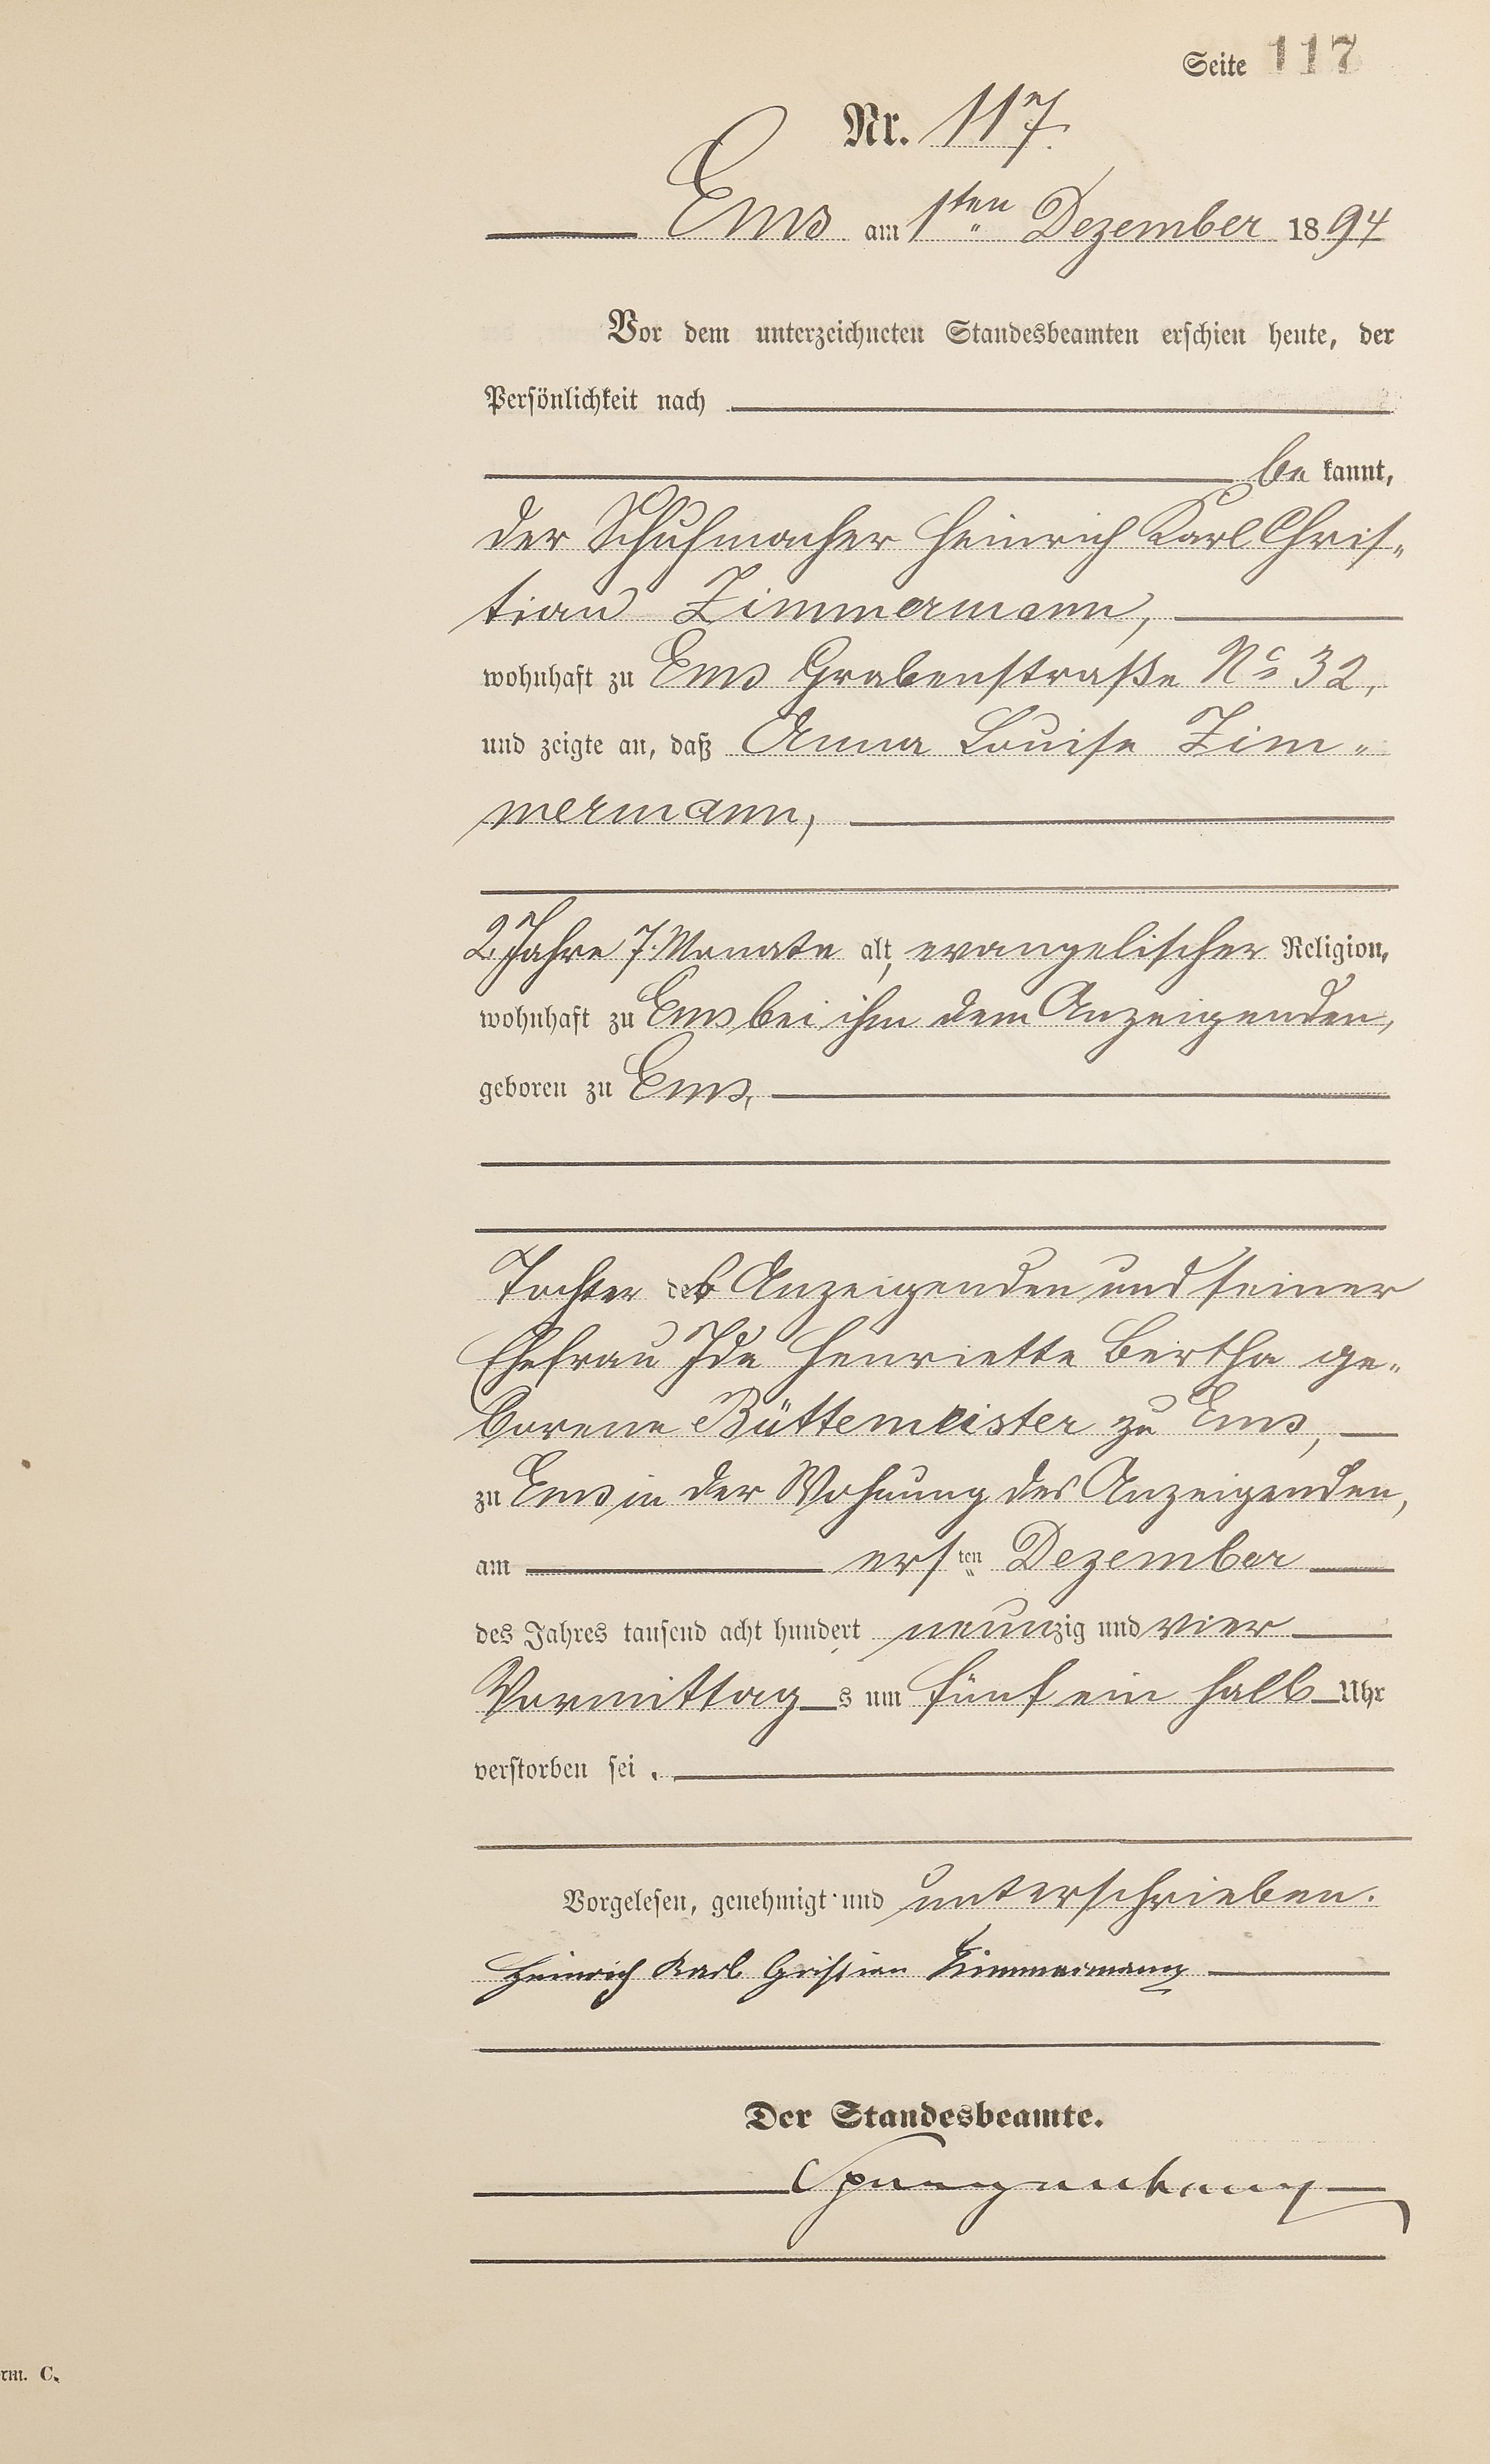 Seite 117
Nr. 117.
Ems am 1sten Dezember 1894
Vor dem unterzeichneten Standesbeamten erschien heute, der
Persönlichkeit nach
be kannt,
der Schuhmacher Heinrich Karl Chris„
tian Zimmermann,
wohnhaft zu Ems Grabenstraße No 32,
und zeigte an, daß Anna Louise Zim„
mermann,
2 Jahre 7 Monate alt, evangelischer Religion,
wohnhaft zu Ems bei ihm dem Anzeigenden,
geboren zu Ems,
Tochter des Anzeigenden und seiner
Ehefrau Ida Henriette Bertha ge„
borene Büttemeister zu Ems,
zu Ems in der Wohnung des Anzeigenden,
am ersten Dezember
des Jahres tausend acht hundert neunzig und vier
Vormittag s um fünf ein halb Uhr
verstorben sei.
Vorgelesen, genehmigt und unterschrieben.
Heinrich Karl Christian Zimmermann
Der Standesbeamte.
Spangenberg
rm. C.